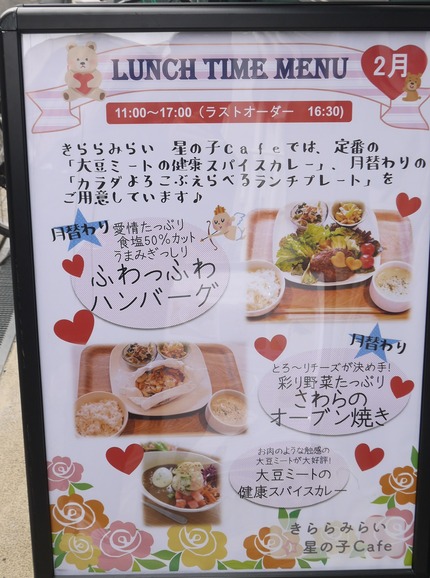 LUNCH TIME MENU
2月
11:00～17:00（ラストオーダー　16:30）
きららみらい　星の子Cafeでは、定番の
「大豆ミートの健康スパイスカレー」、月替わりの
「カラダよろこぶえらべるランチプレート」を
ご用意しています♪
月替わり
愛情たっぷり
食塩50%カット
うまみぎっしり
ふわっふわ
ハンバーグ
月替わり
とろ～りチーズが決め手!
彩り野菜たっぷり
さわらの
オーブン焼き
お肉のような触感の
大豆ミートが大好評!
大豆ミートの
健康スパイスカレー
きららみらい
星の子Cafe